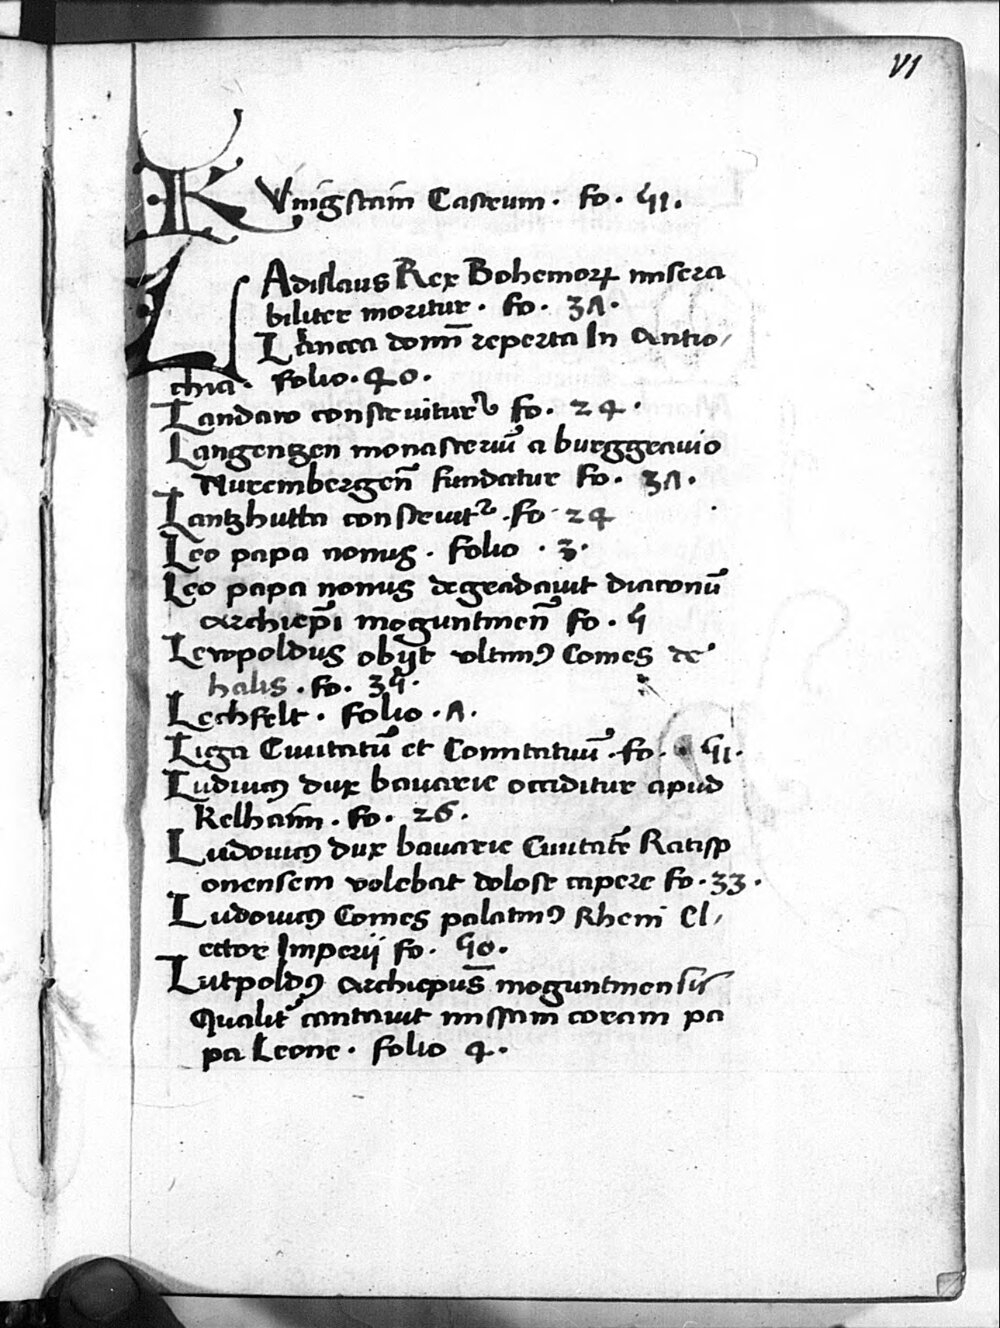 VI
KVnigstain Castrum. fo. 51.
LAdislaus Rex Bohemoꝝ misera
biliter moritur. fo. 37.
Lancea domi͞ reperta In Antio,
chia. folio. 40.
Landaw construitur fo. 24.
Langentzen monasteriū a burggravio
Nurembergen̄ fundatur fo. 37.
Lantzhutta construit᷑ fo 24
Leo papa nonus. folio. 3.
Leo papa nonus degradavit diaconū
Archiep̄i moguntinen̄ fo. 5
Lewpoldus obijt vltimꝰ Comes de
halis. fo. 35.
Lechfelt. folio. 7.
Liga Civitatū et Comitatuū. fo. 51.
Ludvicꝰ dux bavarie occiditur apud
Kelhaim. fo. 26.
Ludovicꝰ dux bavarie Civitatē Ratisp
onensem volebat dolose capere fo. 33.
Ludovicꝰ Comes palatinꝰ Rheni El,
ector Imperij fo. 50.
Lutpoldꝰ Archiepūs moguntinensis
Qualit᷑ cantavit missam coram pa
pa Leone. folio 4.